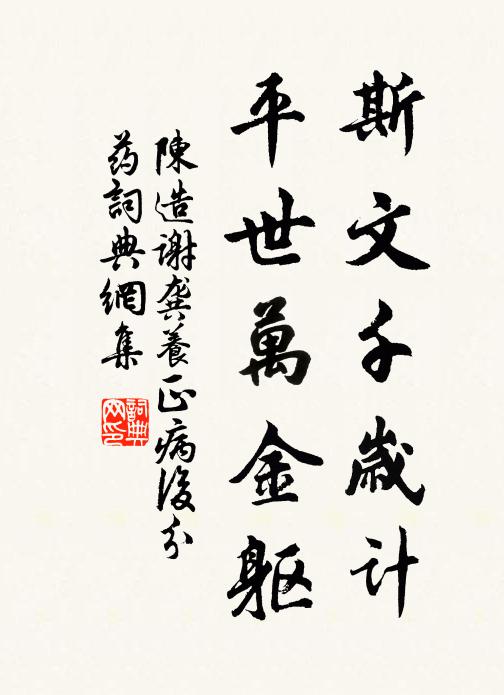 斯文千歲计
平世萬金躯
陳造谢龚養正病後分
药詞典網集
詞典
网印